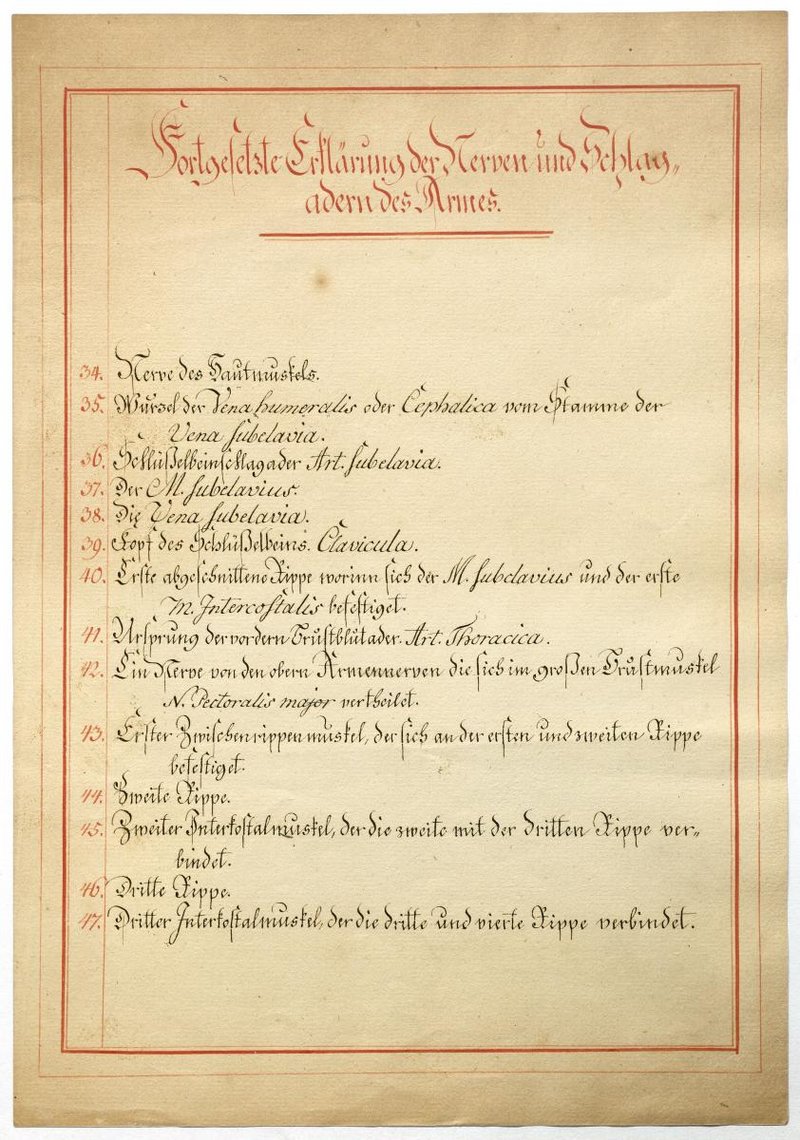 Fortgesetzte Erklärung der Nerven und Schlag„
adern des Armes.
34. Nerve des Hautmuskels.
35. Wurzel der Vena humeralis oder Cephalica vom Stamme der
Vena subclavia.
36. Schlüßelbeinschlagader Art. subclavia.
37. Der M. subclavius.
38. Die Vena subclavia.
39. Kopf des Schlüßelbeins. Clavicula.
40. Erste abgeschnittene Rippe worinn sich der M. subclavius und der erste
M. Intercostalis befestiget.
41. Ursprung der vordern Brustblutader. Art. Thoracica.
42. Ein Nerve von den obern Armennerven die sich im großen Brustmuskel
N. Pectoralis major vertheilet.
43. Erster Zwischenrippenmuskel, der sich an der ersten und zweiten Rippe
befestiget.
44. Zweite Rippe.
45. Zweiter Interkostalmuskel, der die zweite mit der dritten Rippe ver„
bindet.
46. Dritte Rippe.
47. Dritter Interkostalmuskel, der die dritte und vierte Rippe verbindet.